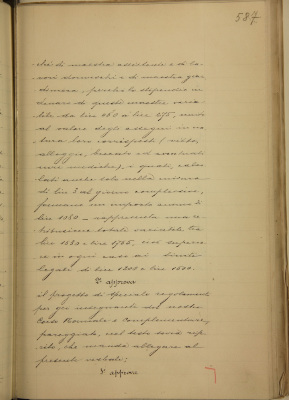 587
chè di maestra assistente e di la-
vori donneschi e di maestra giar-
diniera, perchè lo stipendio in
denaro di queste maestre varia-
bile da lire 650 a lire 775, unito
al valore degli assegni in na-
tura loro corrisposti (vitto,
alloggio, bucato ed eventuali
cure mediche), i quali, calco-
lati anche solo nella misura
di lire 3 al giorno complessive,
formano un importo annuo di
lire 1080 - rappresenta una re-
tribuzione totale variabile tra
lire 1730 e lire 1755, cioè superio-
re in ogni caso ai limiti
legali di lire 1200 e lire 1500.
2° approva
il progetto di speciale regolamento
per gli insegnanti dei nostri
Corsi Normale e Complementare,
pareggiati, nel testo sovra rife-
rito, che manda allegare al
presente verbale;
3° approva